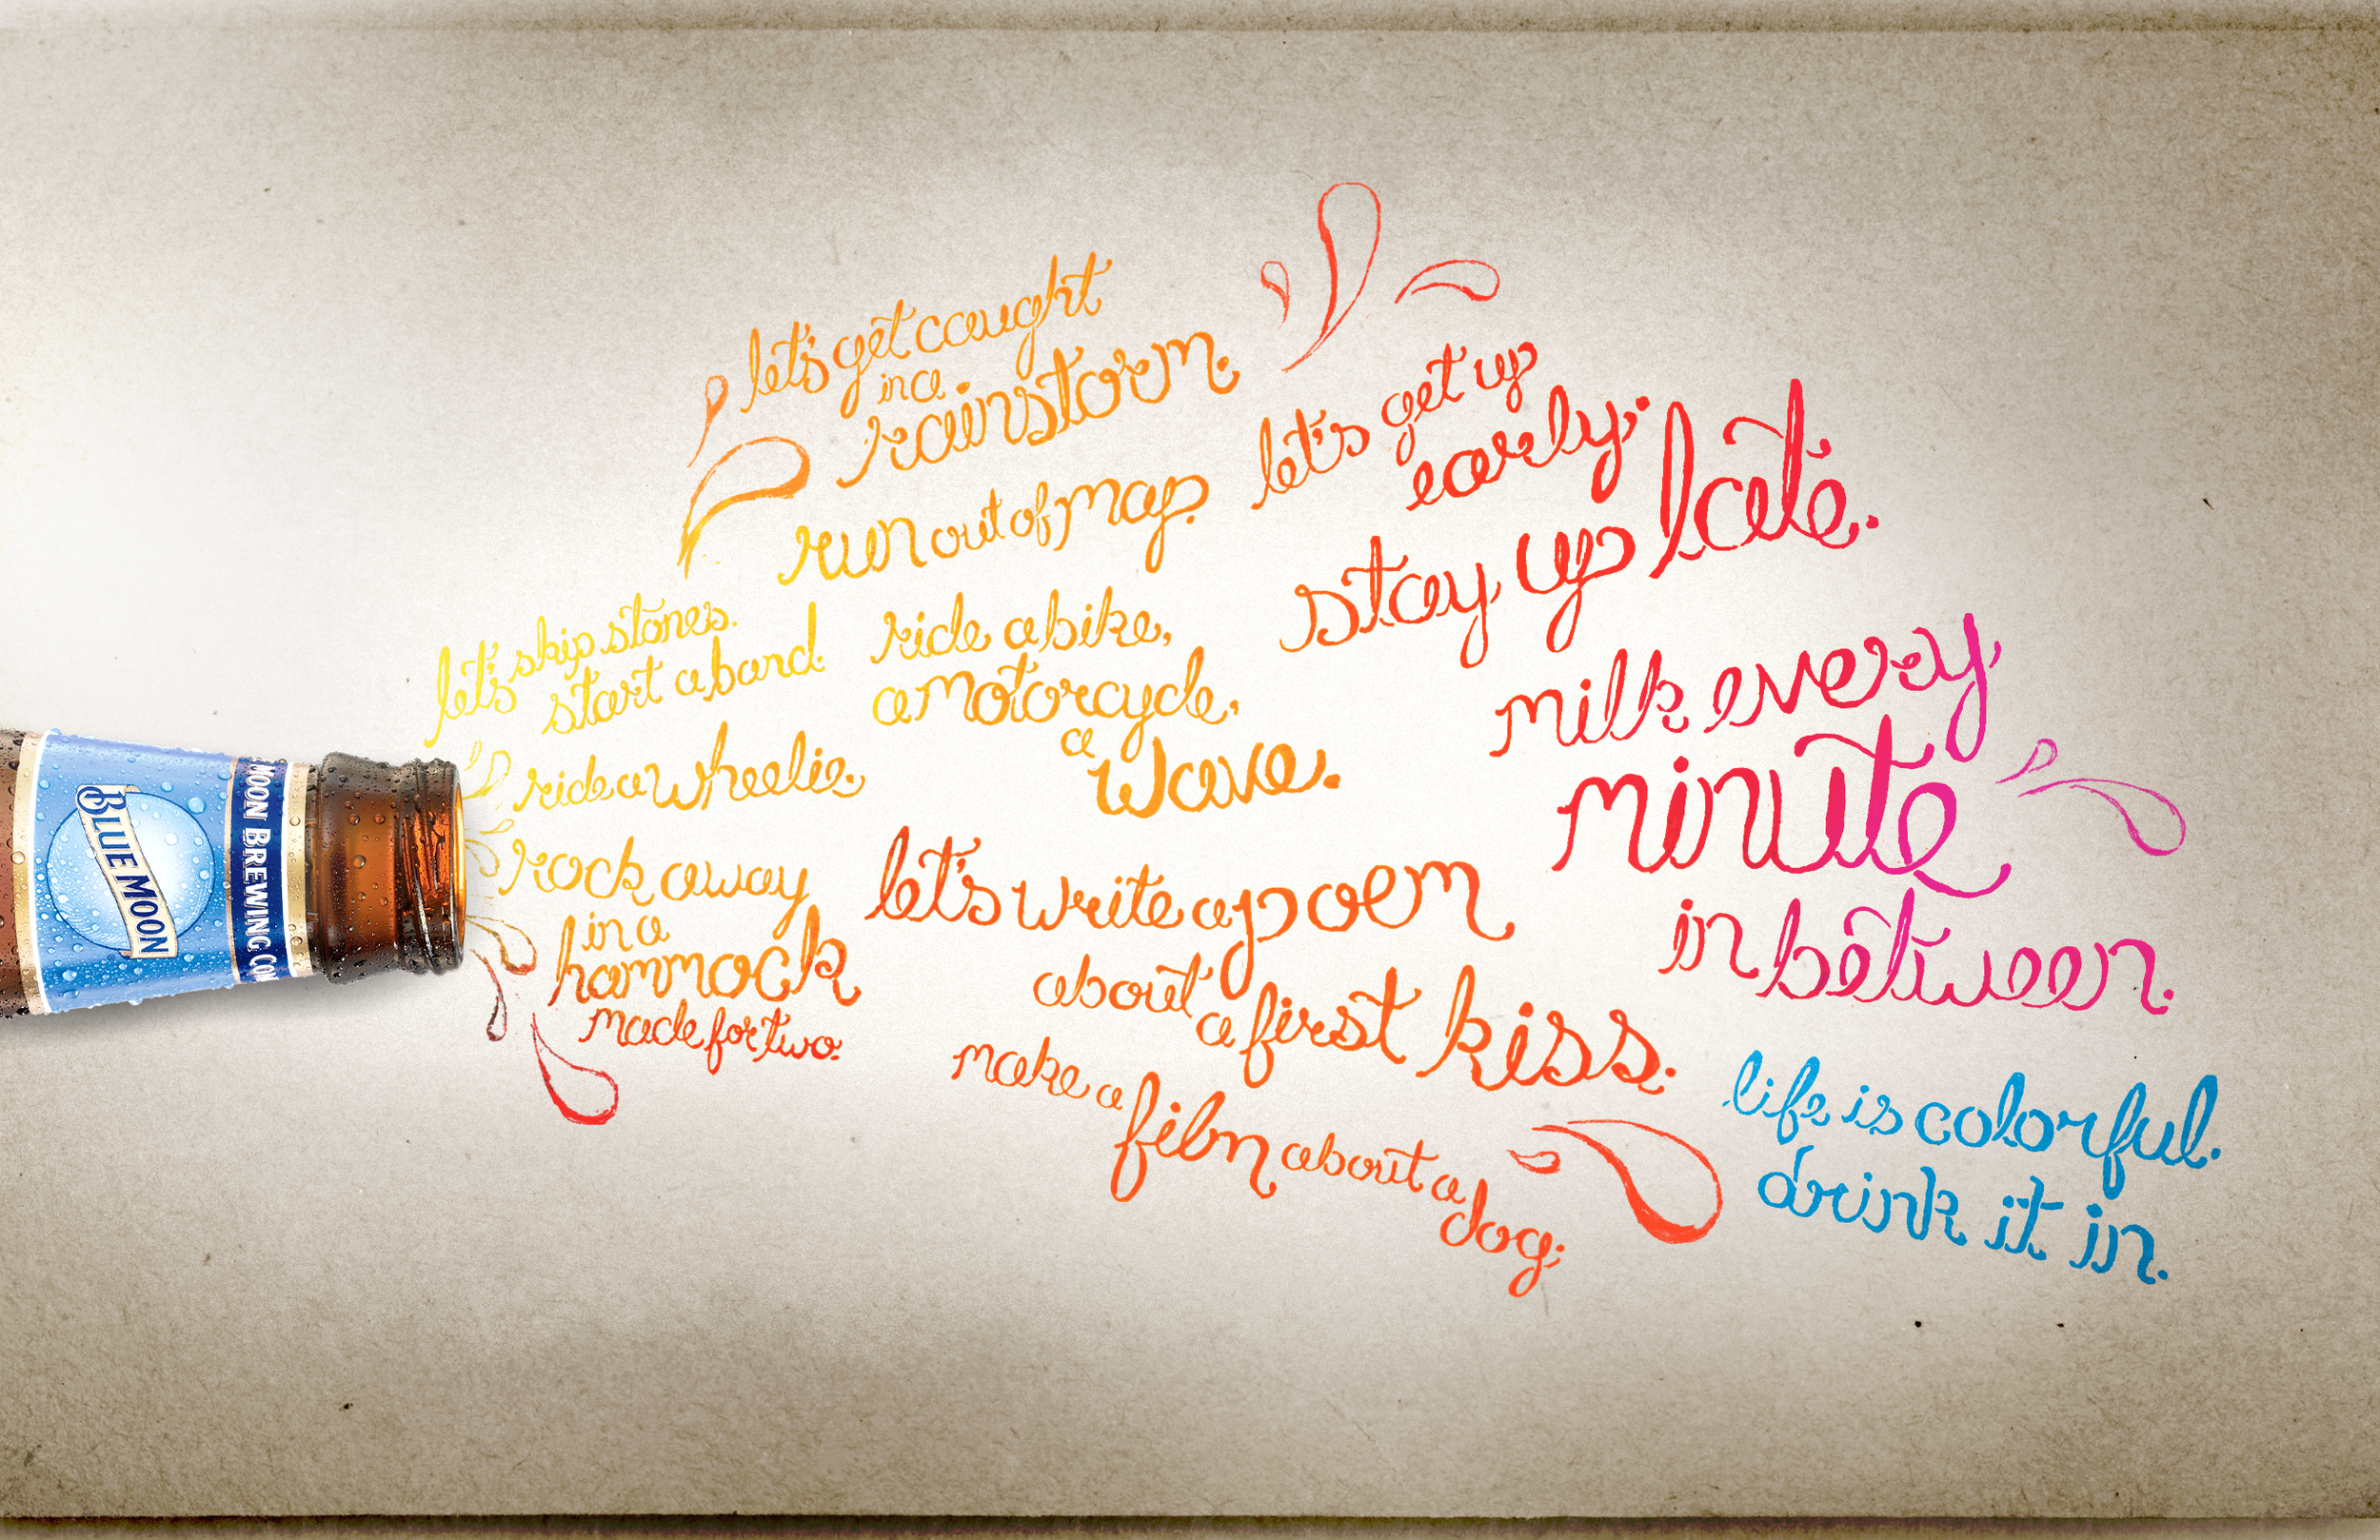 BLUE MOON
MOON BREWING CO
let's skip stones.
start a band.
ride a wheelie.
rock away
in a
hammock
made for two.
let's get caught
in a
rainstorm.
run out of map.
ride a bike,
a motorcycle,
a
wave.
let's write a poem
about
a first kiss.
make a
film about a
dog.
let's get up
early.
stay up late.
milk every
minute
in between.
life is colorful.
drink it in.